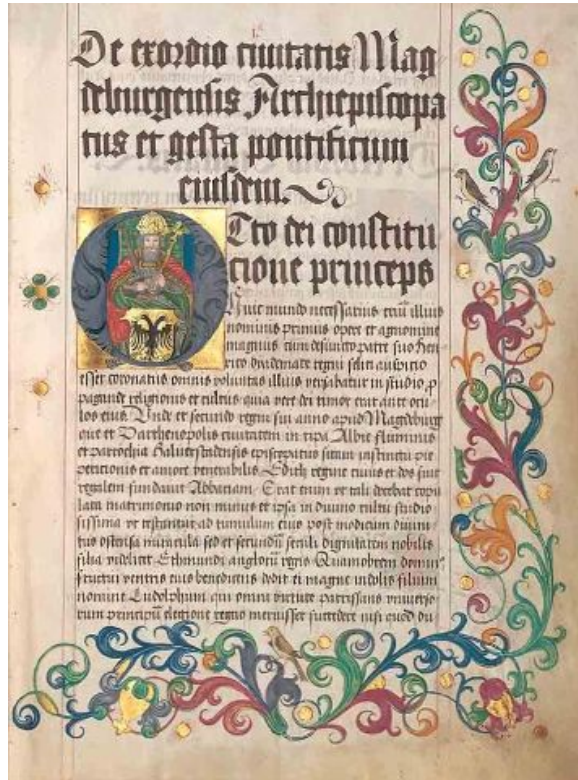 De exordio ciuitatis Mag
deburgensis Archiepiscopa
tus et gesta pontificum
eiusdem.
Otto dei constitu
cione princeps
Huic mundo necessarius cum illius
nominis primus opere et agnomine
magnus cum defuncto patre suo Hen
rico diademate regni
esset coronatus omnis voluntas illius versabatur in studio
pagande religionis et cultus quia vere dei timor erat ante ocu
los eius Unde et secundo regni sui anno apud Magdeburg
que et Parthenopolis ciuitatem in ripa Albie fluminis
et parrochia Halverstadensis episcopatus sitam instinctu pie
peticionis et amore venerabilis Edith regine ciuius et dos fuit
regalem fundauit Abbatiam Erat enim ut tali decebat copu
lata matrimonio non minus et ipsa in diuino cultu studio
sissima ut testantur ad tumulum eius post modicum diuini
tus ostensa miracula sed et secundum seculi dignitatem nobilis
filia videlicet Ethmundi anglorum regis Quamobrem dominus
fructui ventris eius benedicens dedit ei magne indolis filium
nomine Ludolphum qui omni virtute patrissans vniuerso
rum principum electione regno meruisset succedere nisi quod du